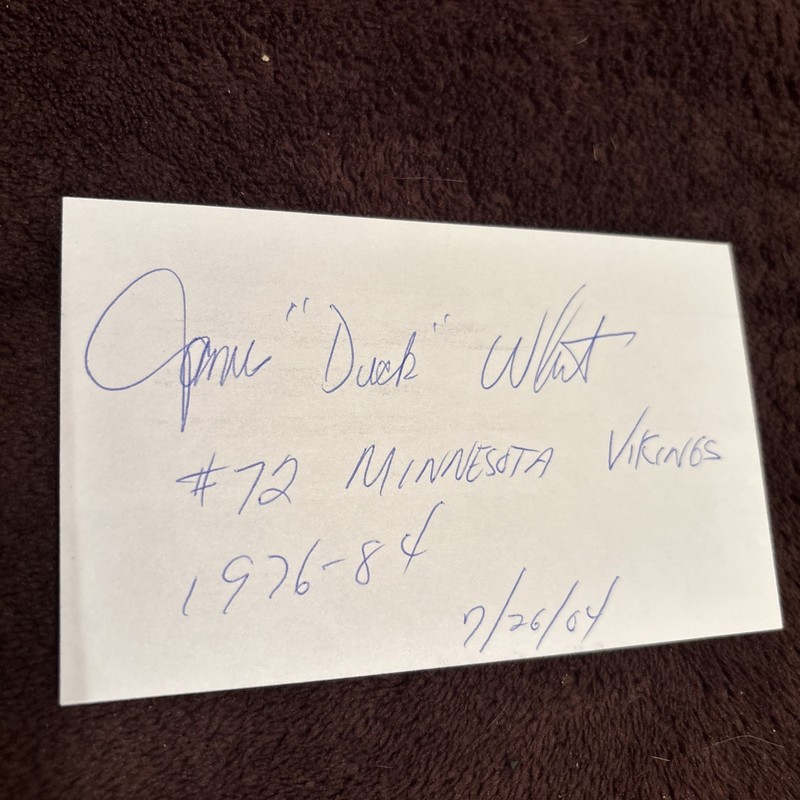 James "Duck" White
#72 MINNESOTA VIKINGS
1976-84
7/26/04